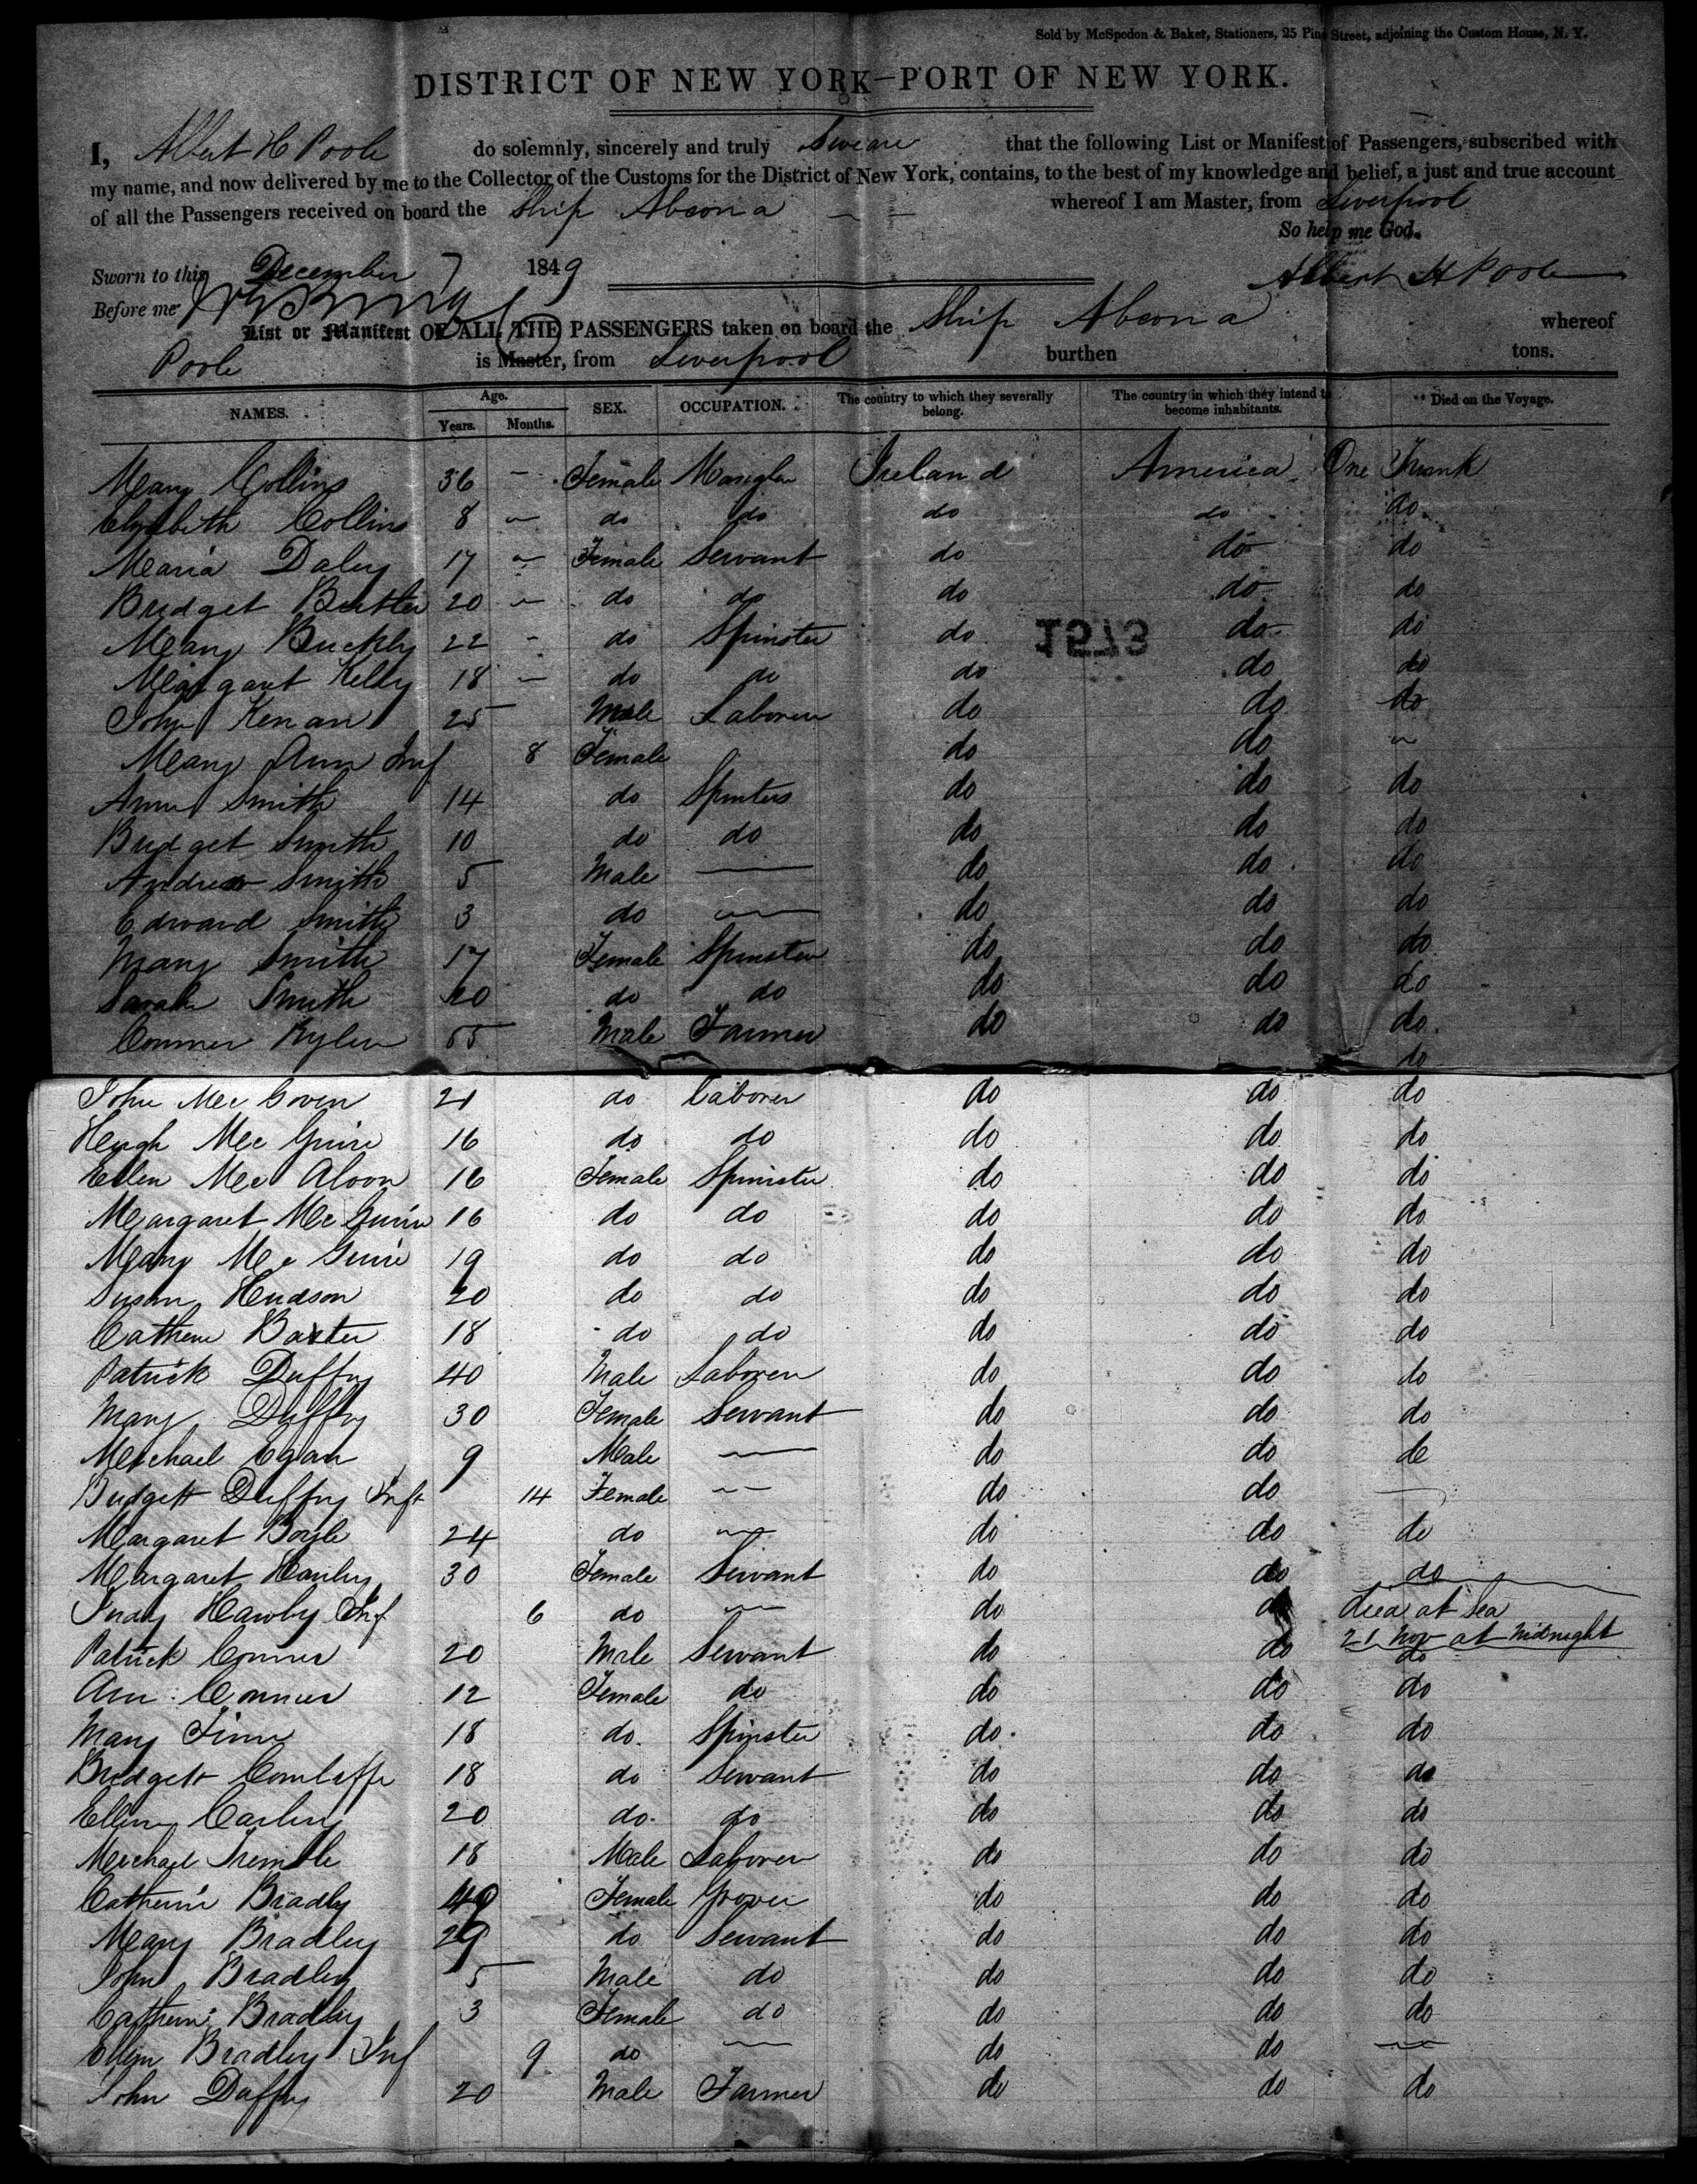 Sold by McSpedon & Baker, Stationers, 25 Pine Street, adjoining the Custom House, N. Y.
DISTRICT OF NEW YORK—PORT OF NEW YORK.
I, Albert H Poole do solemnly, sincerely and truly Swear that the following List or Manifest of Passengers, subscribed with
my name, and now delivered by me to the Collector of the Customs for the District of New York, contains, to the best of my knowledge and belief, a just and true account
of all the Passengers received on board the Ship Abeona whereof I am Master, from Liverpool
So help me God.
Sworn to this December 7 1849
Albert H Poole
Before me
List or Manifest OF ALL THE PASSENGERS taken on board the Ship Abeona whereof
Poole is Master, from Liverpool burthen tons.
NAMES. Age. Years. Months. SEX. OCCUPATION. The country to which they severally belong. The country in which they intend to become inhabitants. Died on the Voyage.
Mary Collins 36 – Female Mangler Ireland America One Trunk
Elizabeth Collins 8 – do do do do do
Maria Daley 17 – Female Servant do do do
Bridget Butler 20 – do do do do do
Mary Buckly 22 – do Spinster do do do
1573
Margaret Kelly 18 – do do do do do
John Kenan 25 Male Laborer do do do
Mary Ann Inf 8 Female do do –
Ann Smith 14 do Spinters do do do
Bridget Smith 10 do do do do do
Andrew Smith 5 Male — do do do
Edward Smith 3 do — do do do
Mary Smith 17 Female Spinster do do do
Sarah Smith 20 do do do do do
Conner 55 Male Farmer do do do
do
John Mc Goven 21 do laborer do do do
Hugh Mc Guire 16 do do do do do
Ellen Mc Aloon 16 Female Spinister do do do
Margaret Mc Guire 16 do do do do do
Mary Mc Guire 19 do do do do do
Susan Hudson 20 do do do do do
Cathern Baxter 18 do do do do do
Patrick Duffy 40 Male Laborer do do do
Mary Duffy 30 Female Servant do do do
Meichael Egan 9 Male — do do do
Bridgett Duffy Inft 14 Female – – do do —
Margaret Boyle 24 do — do do do
Margaret Hawby 30 Female Servant do do do
Judy Hawby Inf 6 do — do do died at Sea
21 Nov at Midnight
Patrick Conner 20 Male Servant do do do
Ann Conner 12 Female do do do do
Mary Finn 18 do Spinster do do do
Bridgett 18 do Servant do do do
Ellen Carley 20 do do do do do
Meichael Tremble 18 Male Laborer do do do
Catherin Bradly 40 Female do do do
Mary Bradley 29 do Servant do do do
John Bradley 5 Male do do do do
Cathern Bradley 3 Female do do do do
Ellen Bradley Inf 9 do — do do —
John Duffy 20 Male Farmer do do do